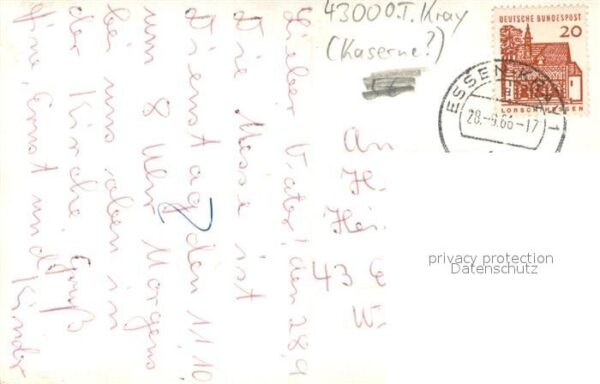 43000 O.T. Kray
(Kaserne?)
DEUTSCHE BUNDESPOST
20
LORSCH HESSEN
ESSEN-KRAY 1
28.-9.66-17
Lieber Vater! den 28.9
Die Messe ist
Dienstag den 11.10
um 8 Uhr Morgens
bei uns oben in
der Kirche Gruß
Ernst und Kinder
An
H.
Hei.
43 E
W.
privacy protection
Datenschutz